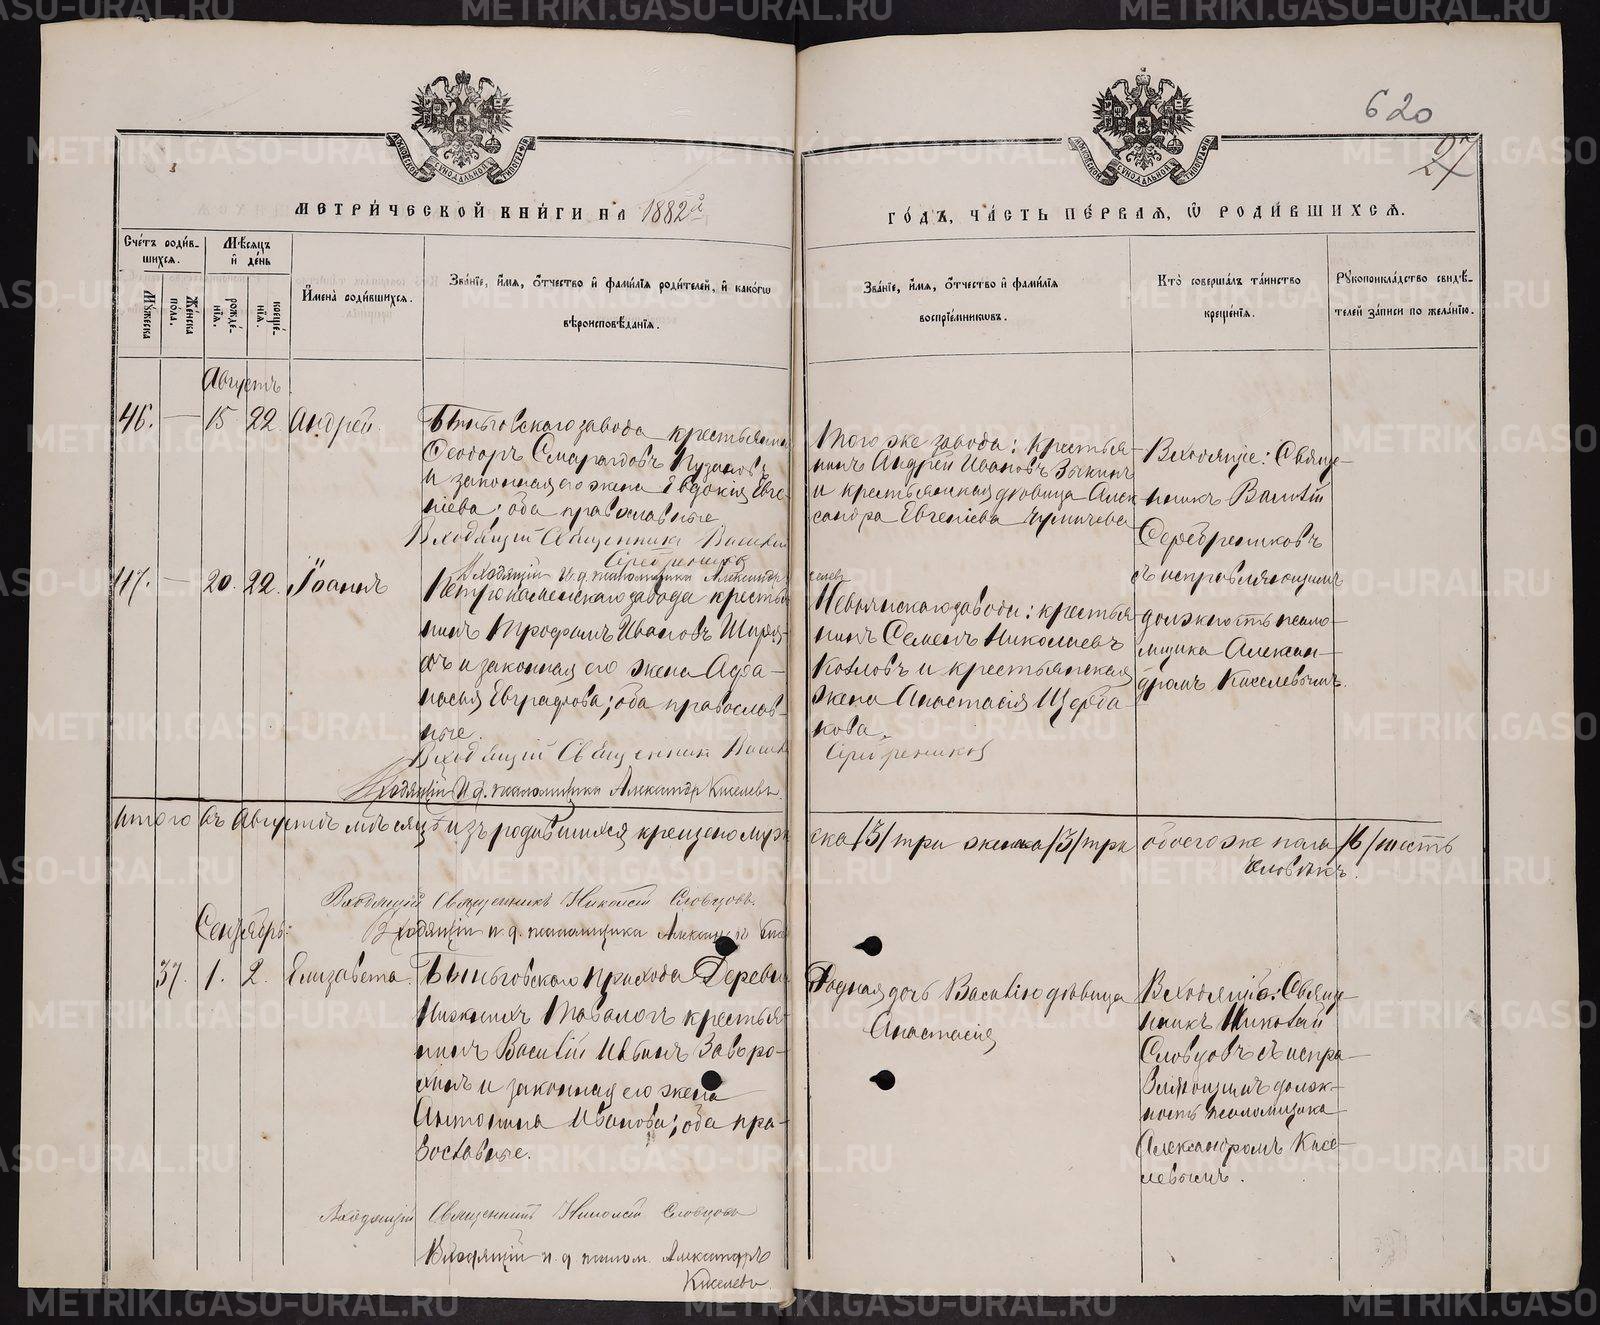 620
27
МЕТРИ́ЧЕСКОЙ КНИ́ГИ НА 1882й
ГО́ДЪ, ЧА́СТЬ ПЕ́РВАЯ, Ѡ РОДИ́ВШИХСЯ.
Сче́тъ роди́в-
шихся.
Мѣ́сяцъ
и҆ де́нь
Мꙋ́жеска
по́ла.
Же́нска
рожде́-
нїѧ.
креще́-
нїѧ.
И҆мена̀ роди́вшихся.
Зва́нїе, и҆́мѧ, ѻ҆́тчество и҆ фами́лїѧ роди́телей, и҆ како́гѡ
вѣроисповѣ́данїѧ.
Зва́нїе, и҆́мѧ, ѻ҆́тчество и҆ фами́лїѧ
воспрїе́мникѡвъ.
Кто̀ соверша́лъ та́инство
креще́нїѧ.
Рꙋкоприкла́дство свидѣ́-
телей за́писи по жела́нїю.
Августъ
46. — 15 22 Андрей.
Быньговскаго завода крестьянинъ
Ѳеодоръ Смарагдовъ Пузановъ
и законная его жена Евдокія Евге-
ніева; оба православные.
Входящій Священникъ Василій
Серебрениковъ
Входящій И. д. псаломщика Александръ
Киселевъ
Того же завода: крестья-
нинъ Андрей Ивановъ Зыкинъ
и крестьянская дѣвица Алек-
сандра Евгеніева
Входящіе: Свяще-
нникъ Василій
Серебрениковъ
съ исправляющимъ
должность псало-
мщика Алексан-
дромъ Киселевымъ.
47. — 20. 22. Іоаннъ
Петрокаменскаго завода крестья-
нинъ Трофимъ Ивановъ
и законная его жена Афа-
насія Евграфова; оба православ-
ные.
Входящій Священникъ Василій
Серебрениковъ
Входящій И. д. псаломщика Александръ Киселевъ.
Невьянскаго завода: крестья-
нинъ Семенъ Николаевъ
Козловъ и крестьянская
жена Анастасія Щерба-
кова.
Итого въ Августѣ мѣсяцѣ изъ родившихся крещено муже-
ска /3/ три женска /3/ три обоего же пола /6/ шесть
человѣкъ.
Входящій Священникъ Николай Словцовъ.
Входящій и. д. псаломщика Александръ Киселевъ
Сентябрь:
37. 1. 2. Елизавета.
Быньговскаго прихода Деревни
Нижнихъ Тавологъ крестья-
нинъ Василій Ивановъ Заворо-
хинъ и законная его жена
Антонина Иванова; оба пра-
вославные.
Родная дочь Василію дѣвица
Анастасія
Входящіе: Свяще-
нникъ Николай
Словцовъ съ испра-
вляющимъ долж-
ность псаломщика
Александромъ Кисе-
левымъ.
Входящій Священникъ Николай Словцовъ
Входящій и. д. псалом. Александръ
Киселевъ.
METRIKI.GASO-URAL.RU